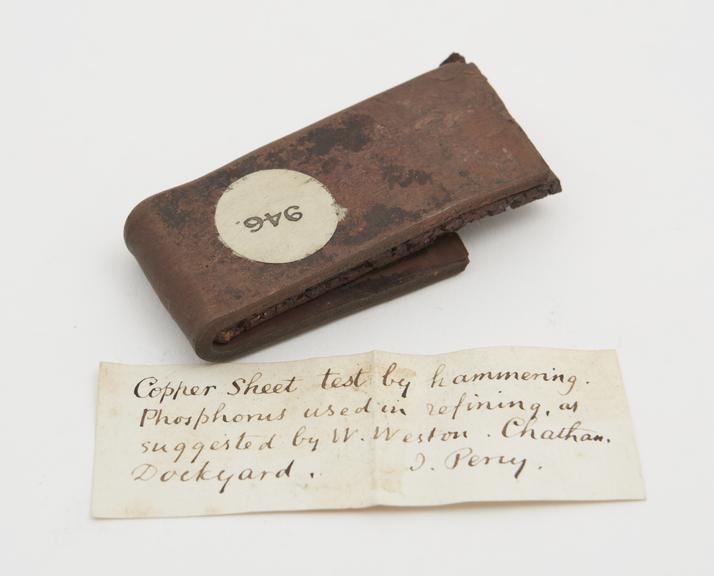 946.
Copper Sheet test by hammering.
Phosphorus used in refining, as
suggested by W. Weston. Chatham.
Dockyard. J. Percy.